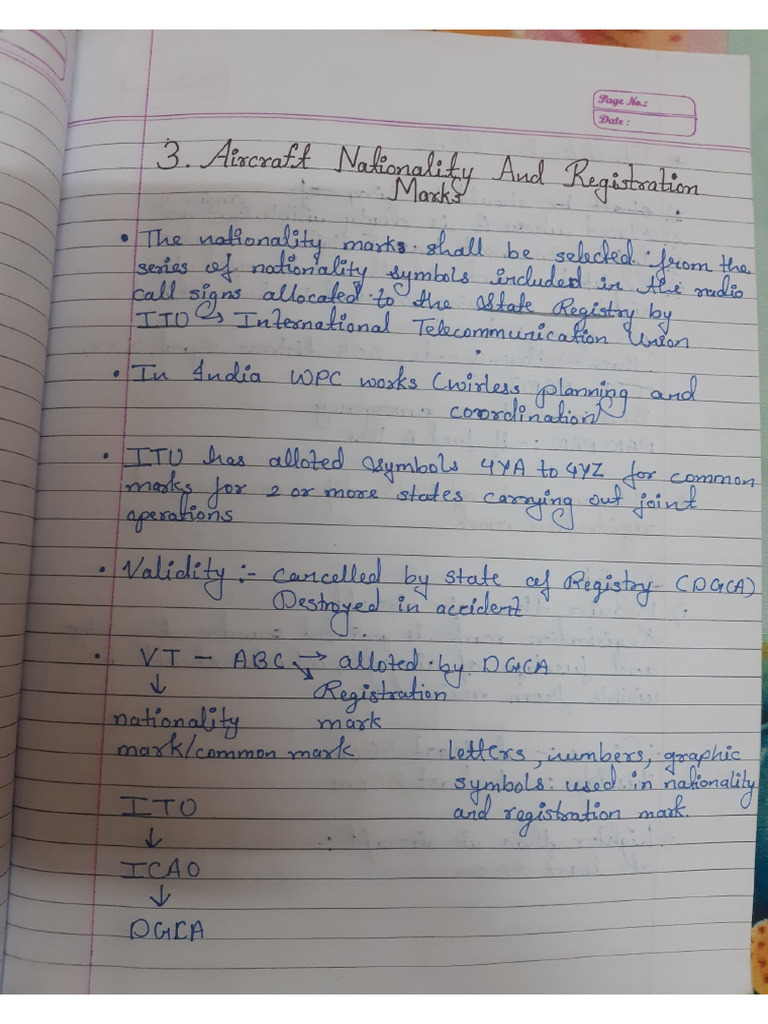 Page No.:
Date :
3. Aircraft Nationality And Registration
Marks
• The nationality marks shall be selected from the
series of nationality symbols included in the radio
call signs allocated to the State Registry by
ITU ↳ International Telecommunication Union
• In India WPC works (wirless planning and
coordination)
• ITU has alloted symbols 4YA to 4YZ for common
marks for 2 or more states carrying out joint
operations
• Validity :- cancelled by state of Registry (DGCA)
Destroyed in accident
• VT - ABC → alloted by DGCA
↓ ↘ Registration
nationality mark
mark/common mark letters, numbers, graphic
symbols used in nationality
ITU and registration mark.
↓
ICAO
↓
DGCA